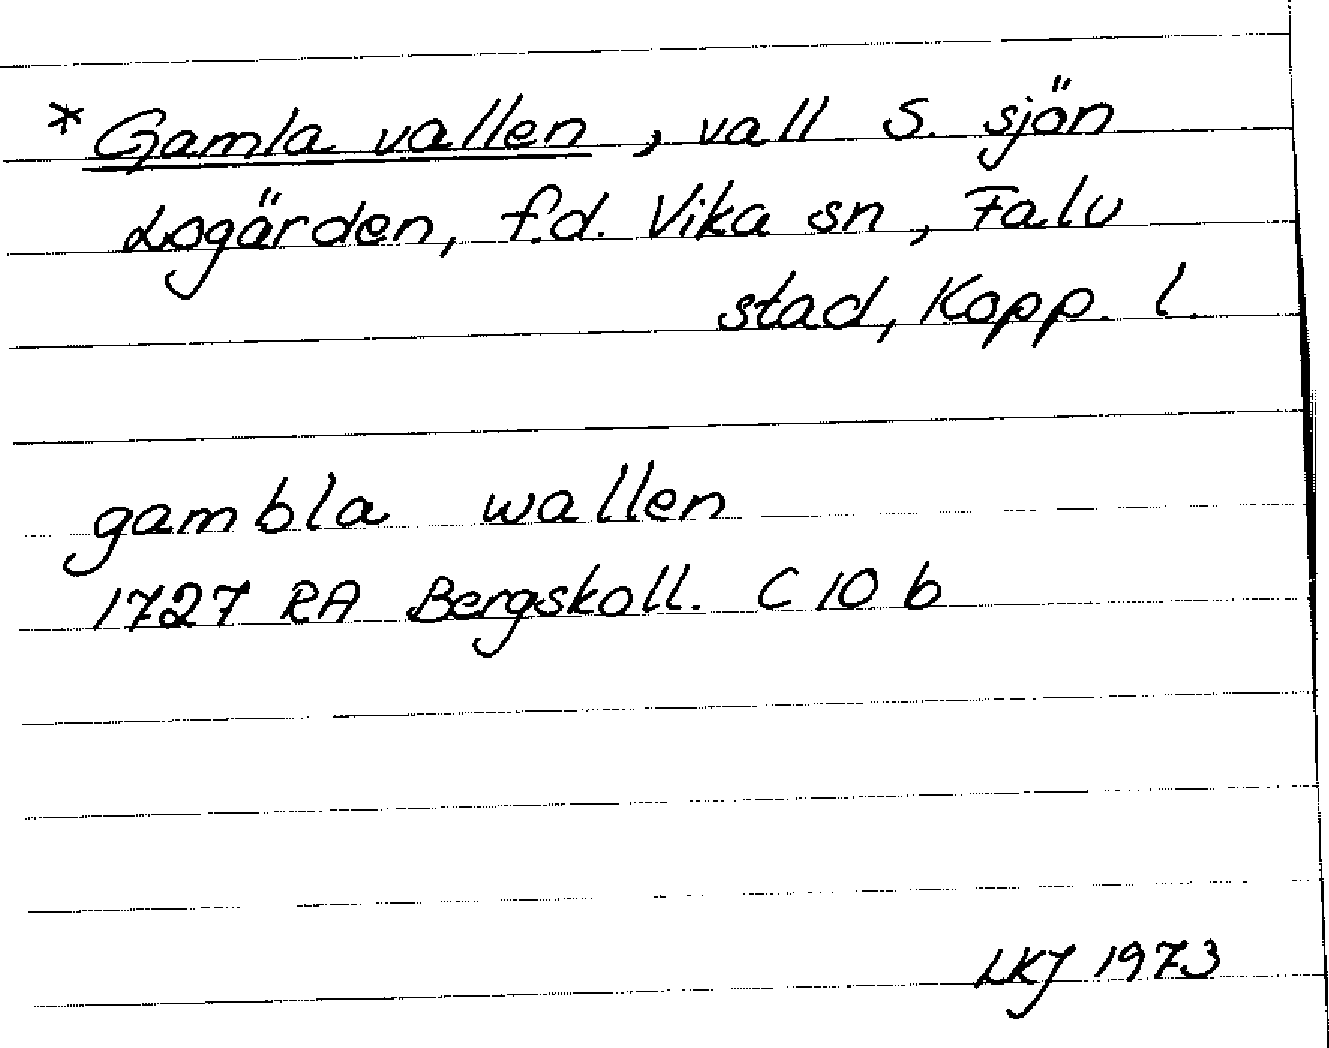 * Gamla vallen, vall S. sjön
Logärden, f.d. Vika sn, Falu
stad, Kopp. l.
gambla wallen
1727 RA Bergskoll. C 10 b
LKJ 1973